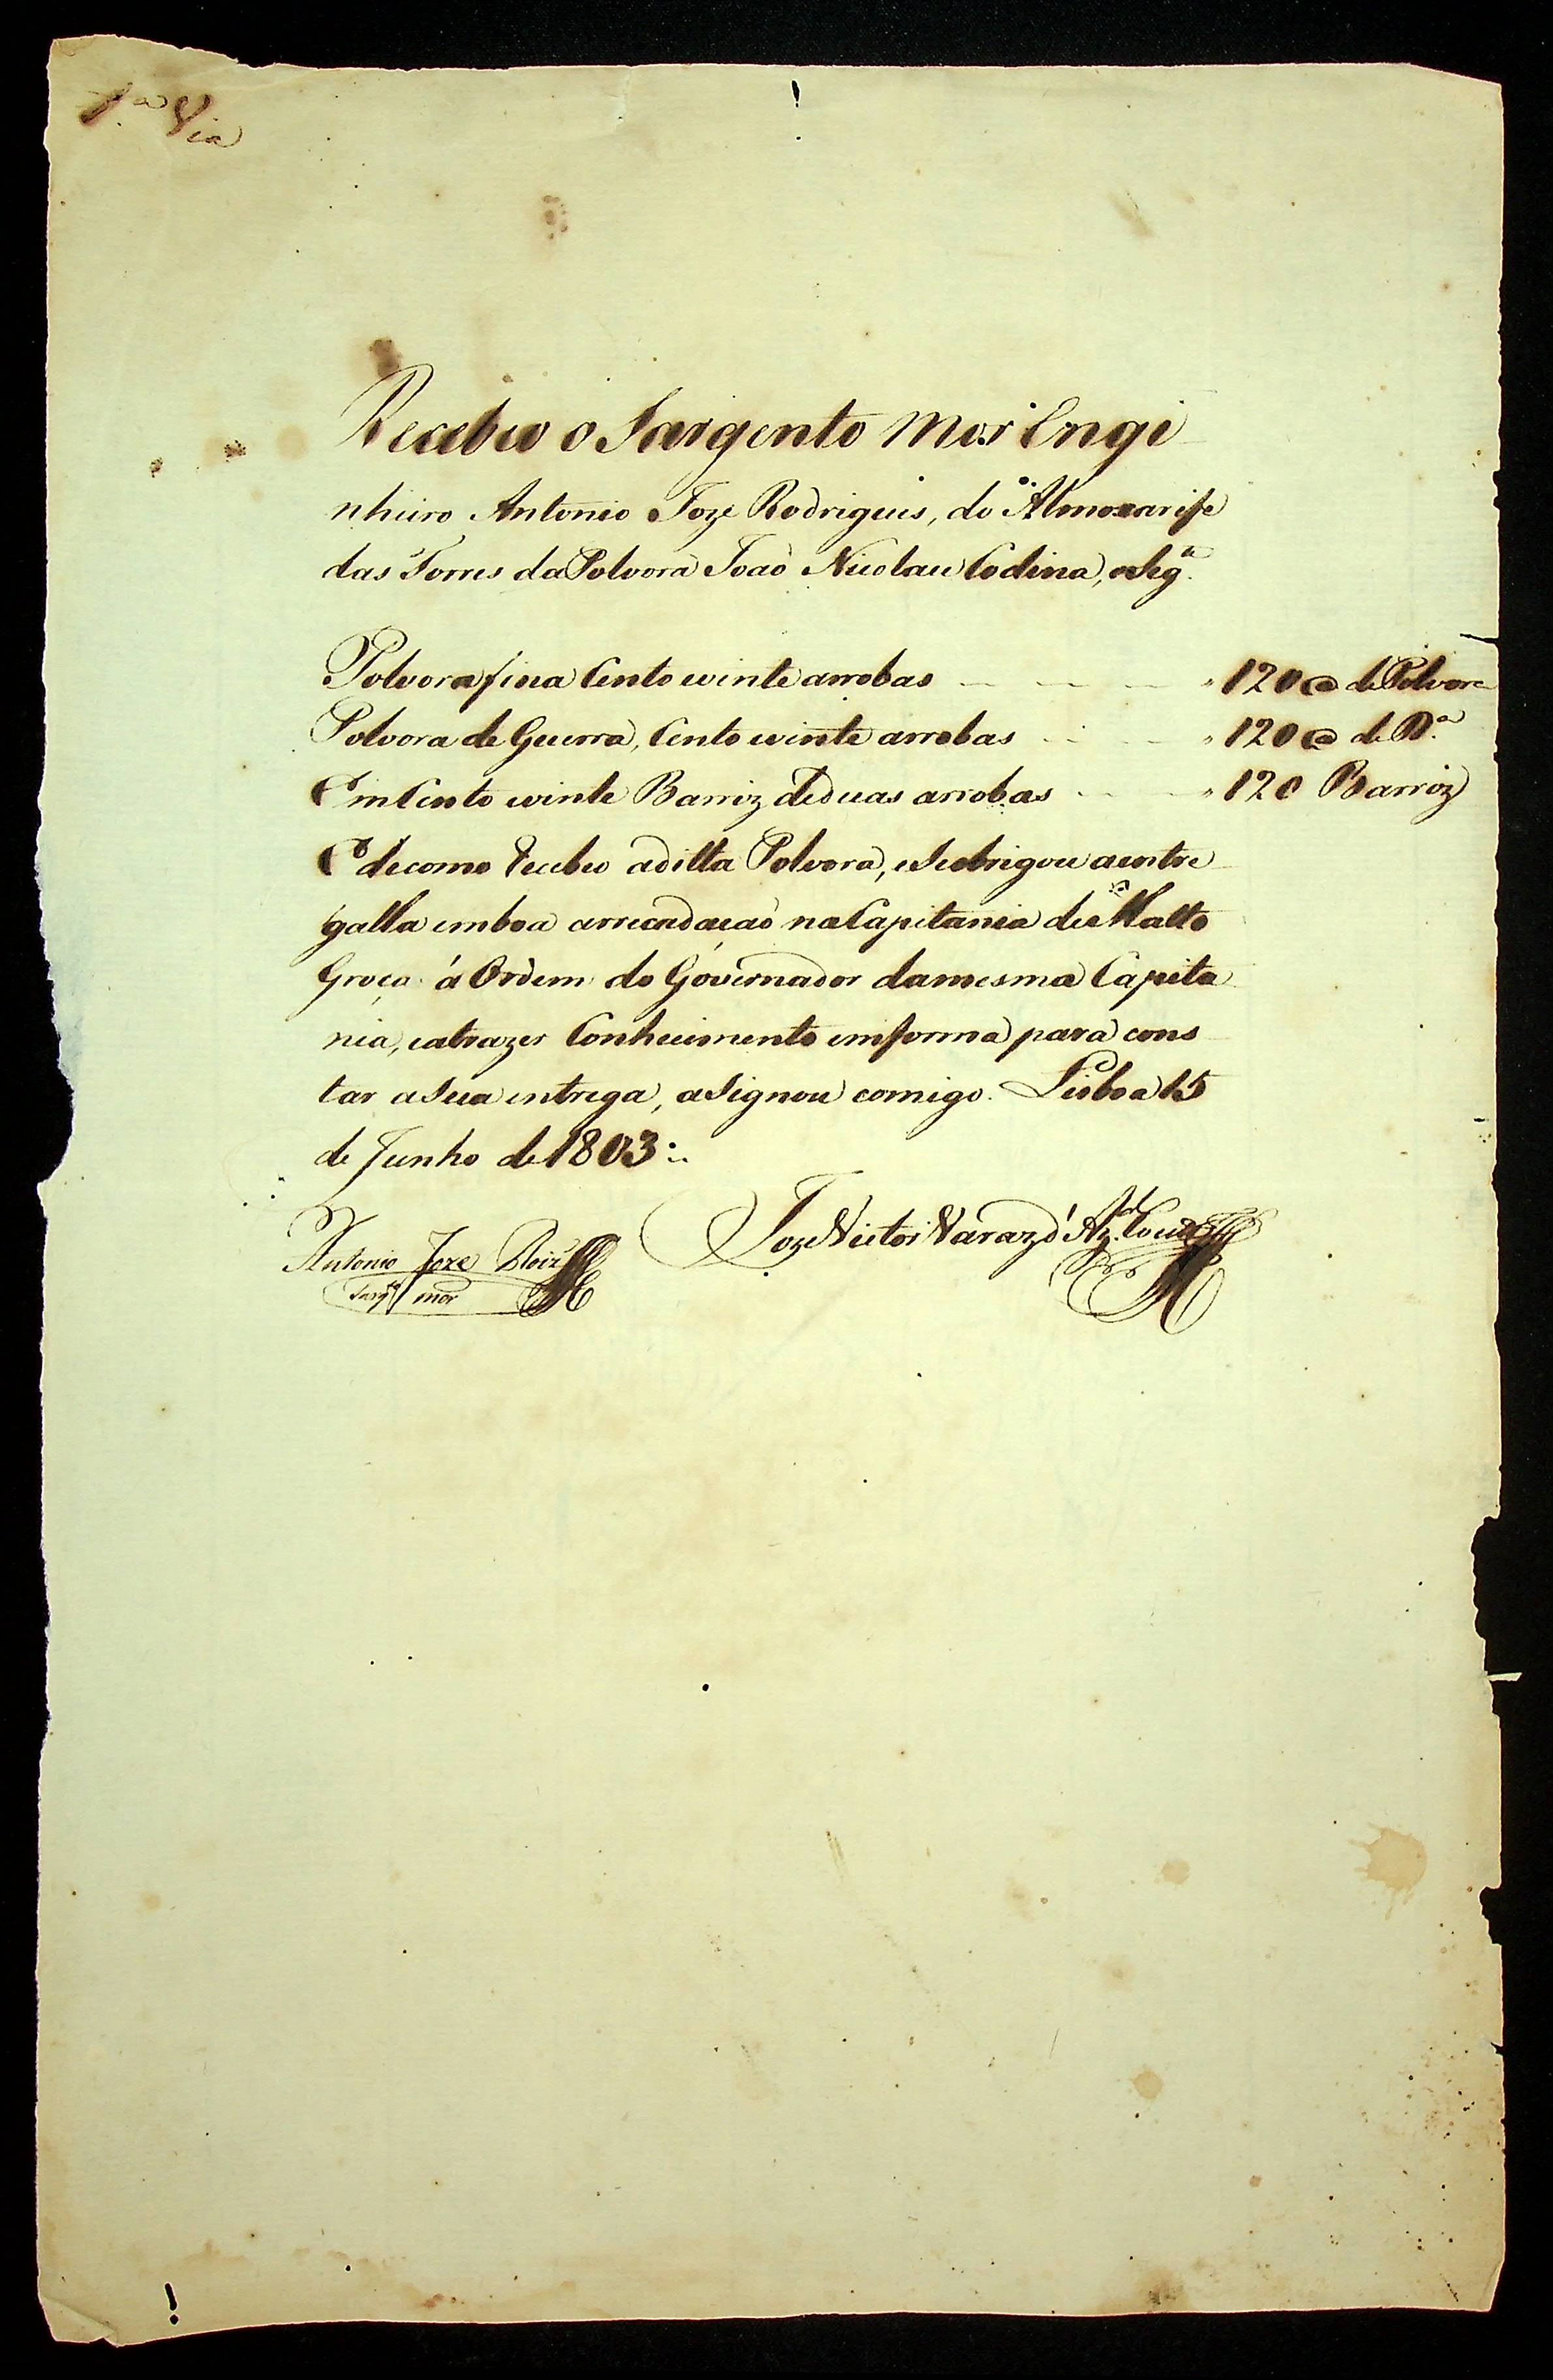 1.ª Via
Recebeo o Sargento Mor Engi
nheiro Antonio Joze Rodrigues, do Almoxarife
das Torres da Polvora Joaõ Nicolau Codina, oSeg.te
Polvora fina Cento evinte arrobas 120 @ de Polvora
Polvora de Guerra, Cento evinte arrobas 120 @ de D.ª
Em Cento evinte Barriz deduas arrobas 120 Barriz
E decomo Recebeo aditta Polvora, eSeobrigou aentre
galla emboa arrecadaçaõ naCapitania de Matto
Groço á Ordem do Governador damesma Capita
nia, eatrazer Conhecimento emforma para cons
tar aSua entrega, aSignou comigo. Lisboa 15
de Junho de 1803
Antonio Joze Roiz Joze Victor Varaz d'
Sarg.to mor